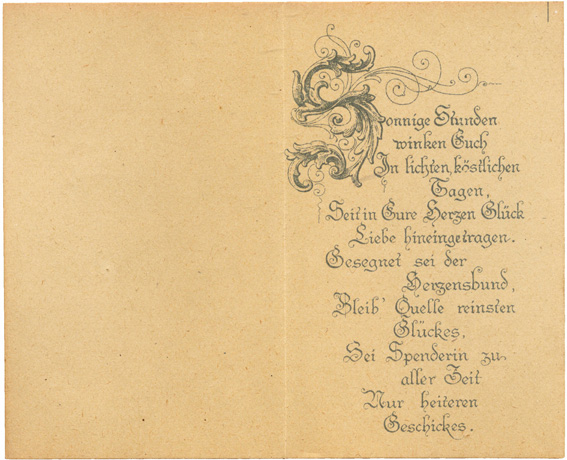 Sonnige Stunden
winken Euch
In lichten, köstlichen
Tagen,
Seit in Eure Herzen Glück
Liebe hineingetragen.
Gesegnet sei der
Herzensbund,
Bleib' Quelle reinsten
Glückes,
Sei Spenderin zu
aller Zeit
Nur heiteren
Geschickes.